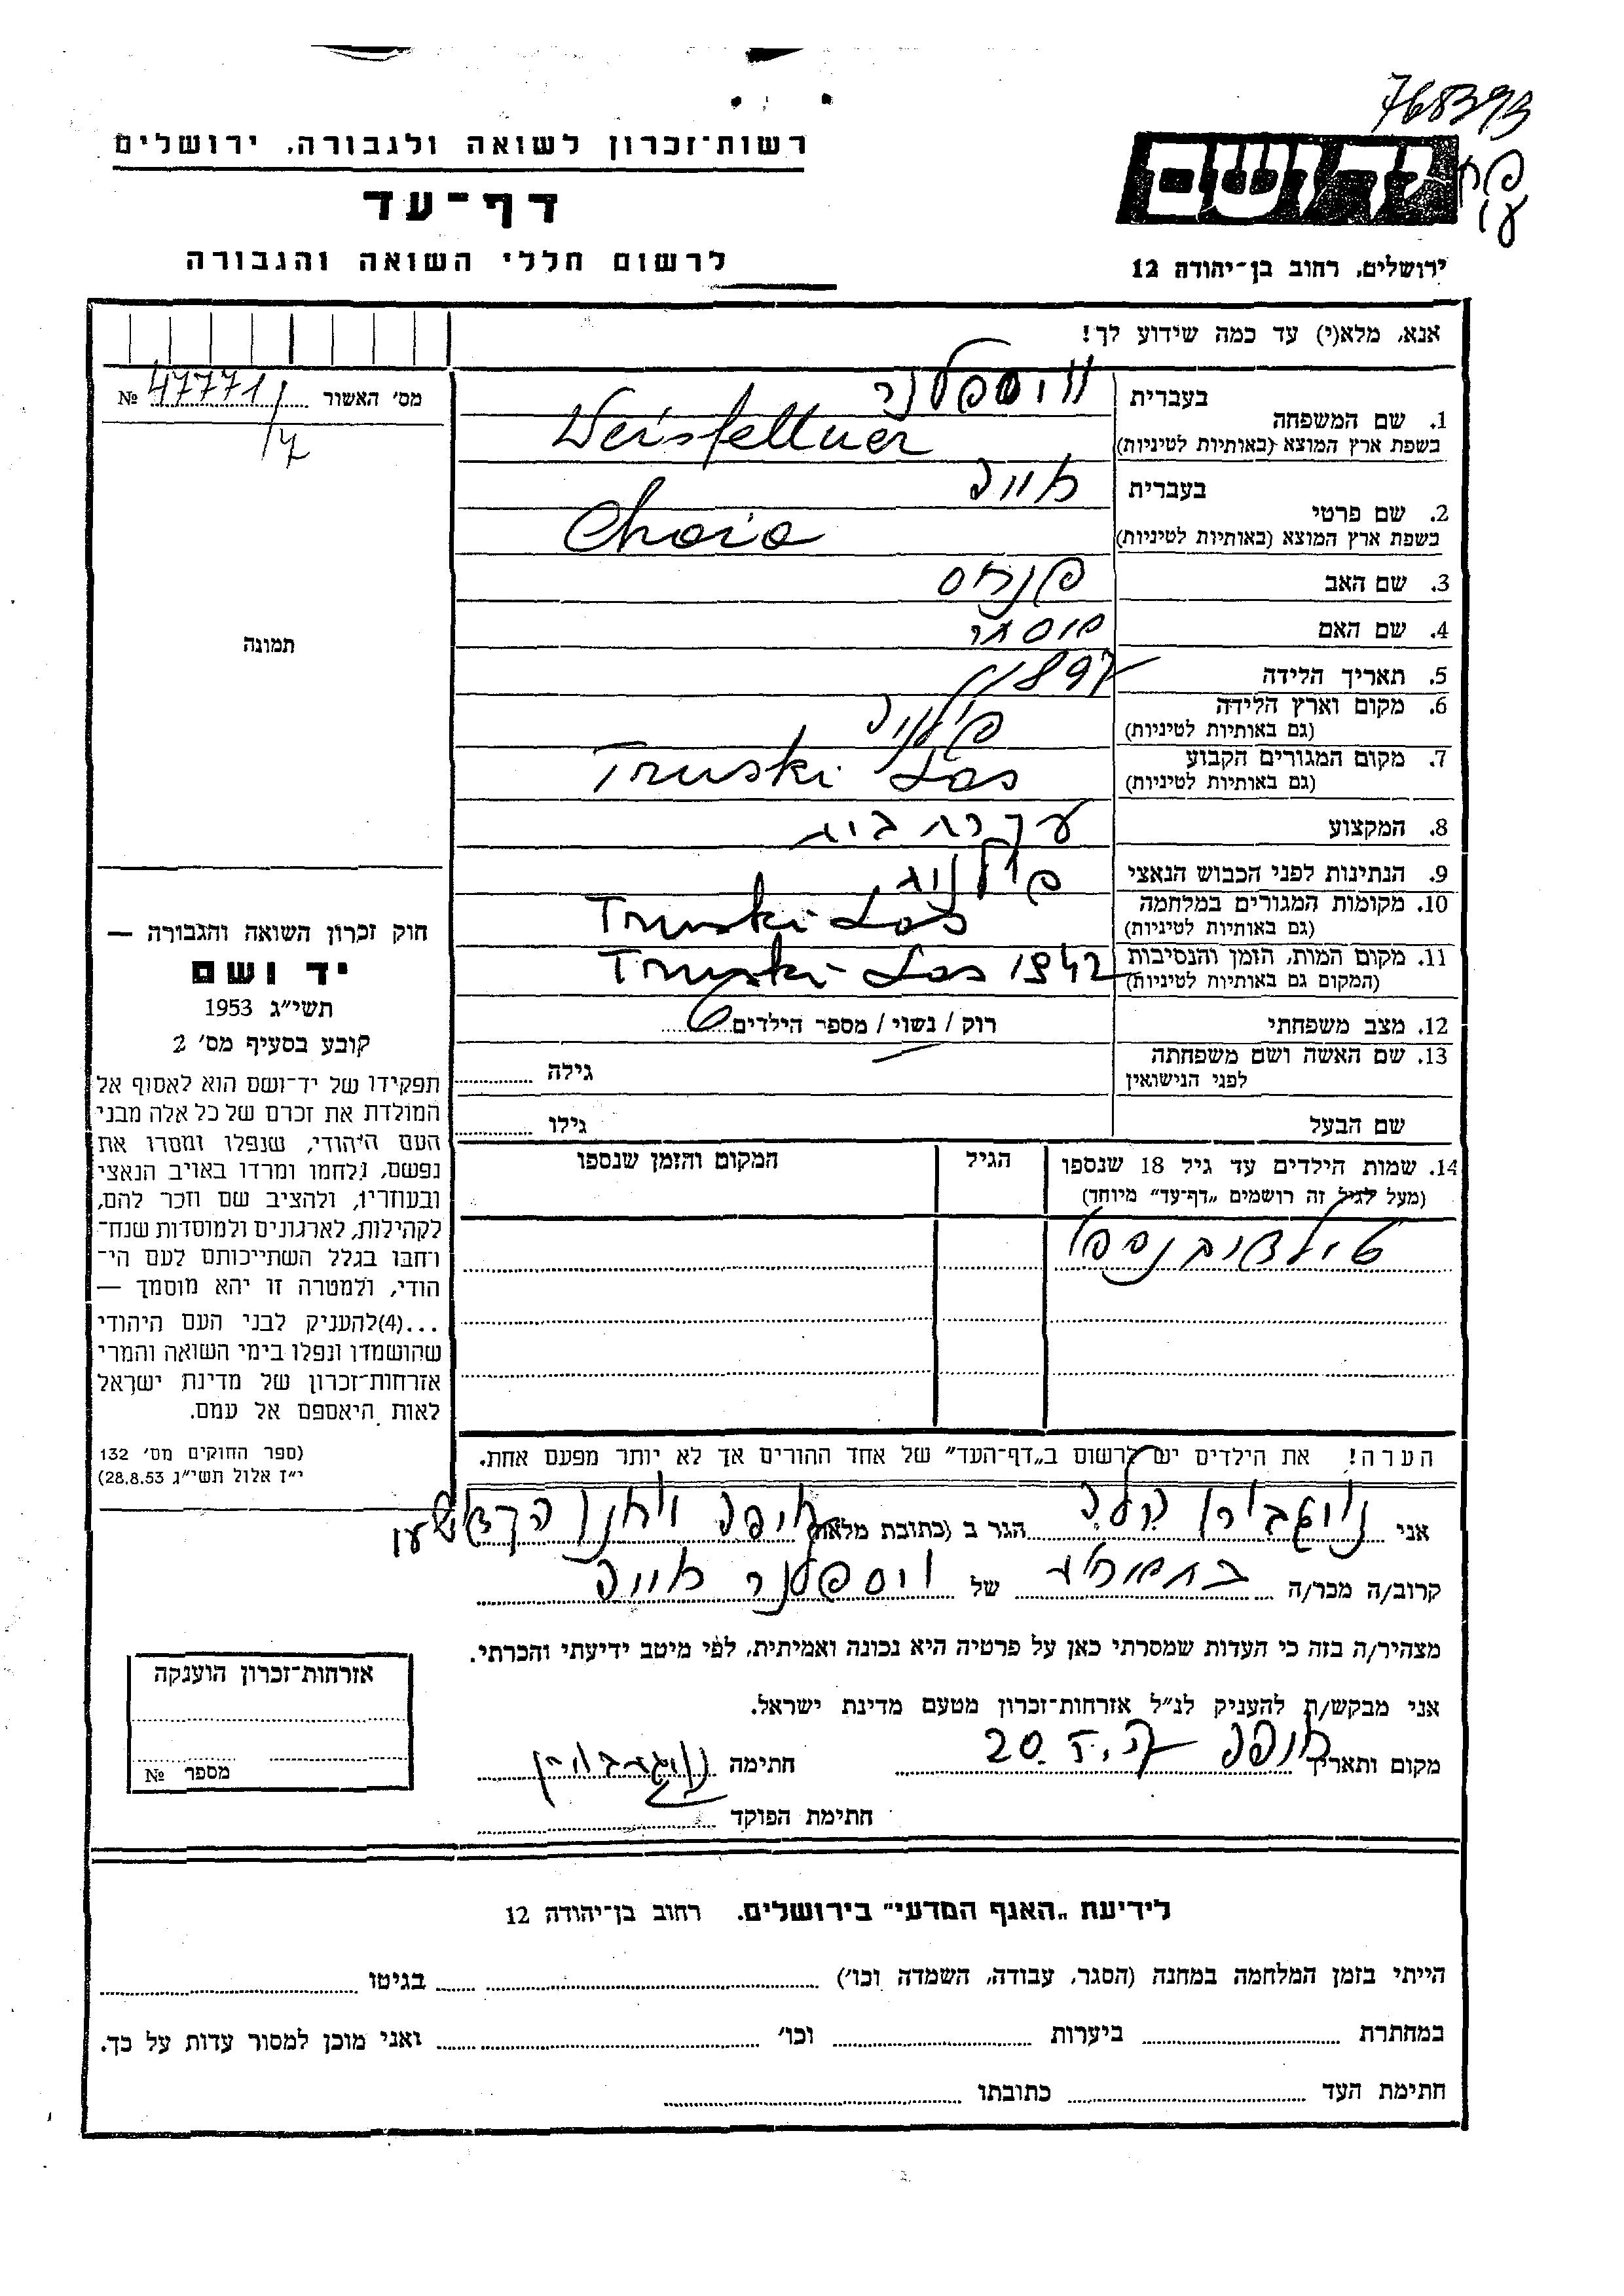 768393
רשות־זכרון לשואה ולגבורה, ירושלים
דף־עד
לרשום חללי השואה והגבורה
יד ושם
ירושלים, רחוב בן־יהודה 12
אנא, מלא(י) עד כמה שידוע לך!
מס׳ האשור № 47771/7
1. שם המשפחה
בעברית
בשפת ארץ המוצא (באותיות לטיניות) Weisfeltner
2. שם פרטי
בעברית
בשפת ארץ המוצא (באותיות לטיניות) Chaia
3. שם האב פנחס
4. שם האם
5. תאריך הלידה 1897
6. מקום וארץ הלידה
(גם באותיות לטיניות)
7. מקום המגורים הקבוע Truski Las
(גם באותיות לטיניות)
8. המקצוע עקרת בית
9. הנתינות לפני הכבוש הנאצי
10. מקומות המגורים במלחמה Truski Las
(גם באותיות לטיניות)
11. מקום המות, הזמן והנסיבות Truski-Las 1942
(המקום גם באותיות לטיניות)
12. מצב משפחתי רוק / נשוי / מספר הילדים 6
13. שם האשה ושם משפחתה גילה
לפני הנישואין
שם הבעל גילו
14. שמות הילדים עד גיל 18 שנספו הגיל המקום והזמן שנספו
(מעל לגיל זה רושמים „דף־עד״ מיוחד)
הערה! את הילדים יש לרשום ב„דף־העד״ של אחד ההורים אך לא יותר מפעם אחת.
תמונה
חוק זכרון השואה והגבורה —
יד ושם
תשי״ג 1953
קובע בסעיף מס׳ 2
תפקידו של יד־ושם הוא לאסוף אל
המולדת את זכרם של כל אלה מבני
העם היהודי, שנפלו ומסרו את
נפשם, נלחמו ומרדו באויב הנאצי
ובעוזריו, ולהציב שם וזכר להם,
לקהילות, לארגונים ולמוסדות שנח־
רחבו בגלל השתייכותם לעם הי־
הודי, ולמטרה זו יהא מוסמך —
...(4)להעניק לבני העם היהודי
שהושמדו ונפלו בימי השואה והמרי
אזרחות־זכרון של מדינת ישראל
לאות היאספם אל עמם.
(ספר החוקים מס׳ 132
י״ז אלול תשי״ג 28.8.53)
אני הגר ב (כתובת מלאה) חיפה
קרוב/ה מכר/ה של
מצהיר/ה בזה כי העדות שמסרתי כאן על פרטיה היא נכונה ואמיתית, לפי מיטב ידיעתי והכרתי.
אני מבקש/ת להעניק לנ״ל אזרחות־זכרון מטעם מדינת ישראל.
מקום ותאריך חיפה חתימה
חתימת הפוקד
אזרחות־זכרון הוענקה
מספר №
לידיעת „האגף המדעי״ בירושלים. רחוב בן־יהודה 12
הייתי בזמן המלחמה במחנה (הסגר, עבודה, השמדה וכו׳) בגיטו
במחתרת ביערות וכו׳ ואני מוכן למסור עדות על כך.
חתימת העד כתובתו